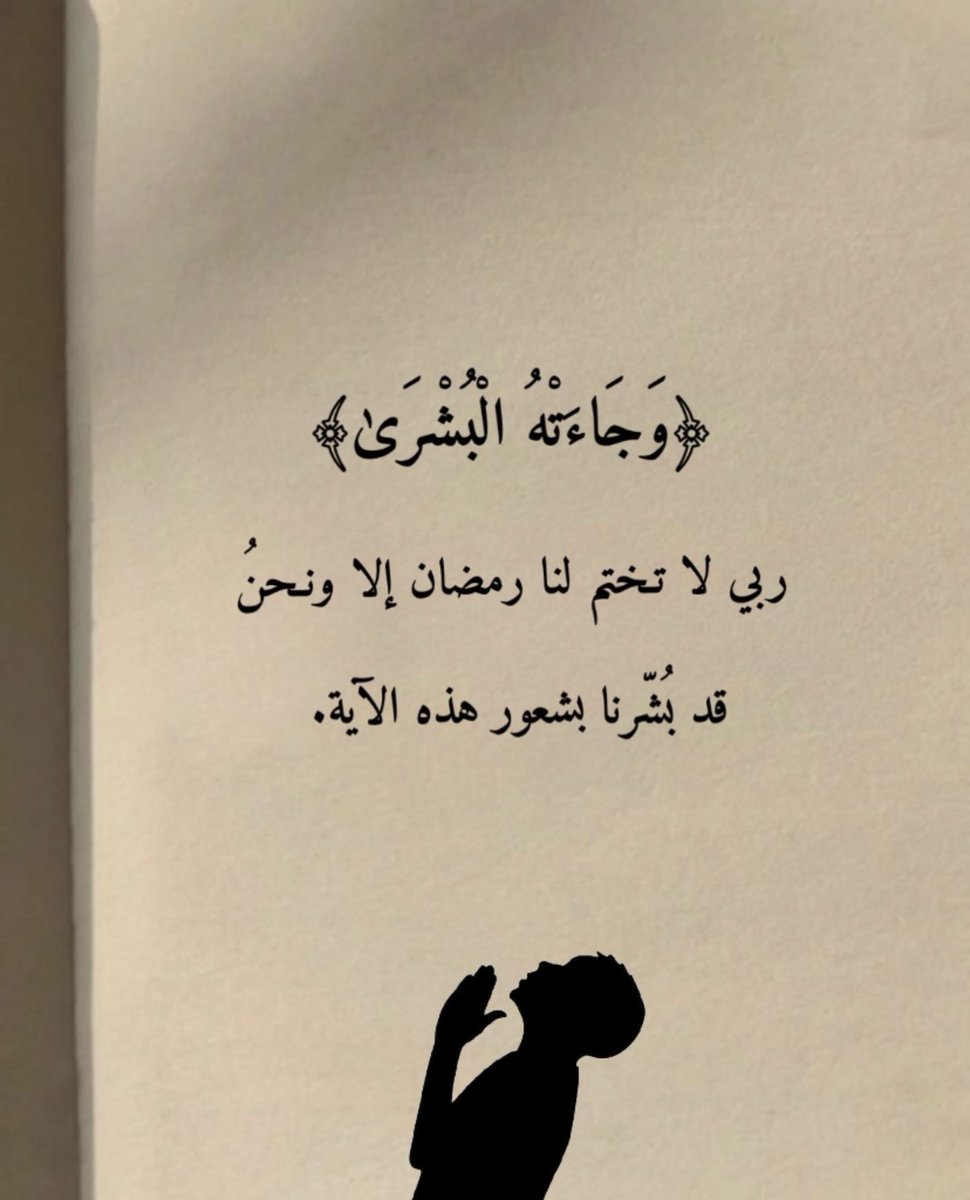 ﴿وَجَاءَتْهُ الْبُشْرَىٰ﴾
ربي لا تختم لنا رمضان إلا ونحنُ
قد بُشّرنا بشعور هذه الآية.